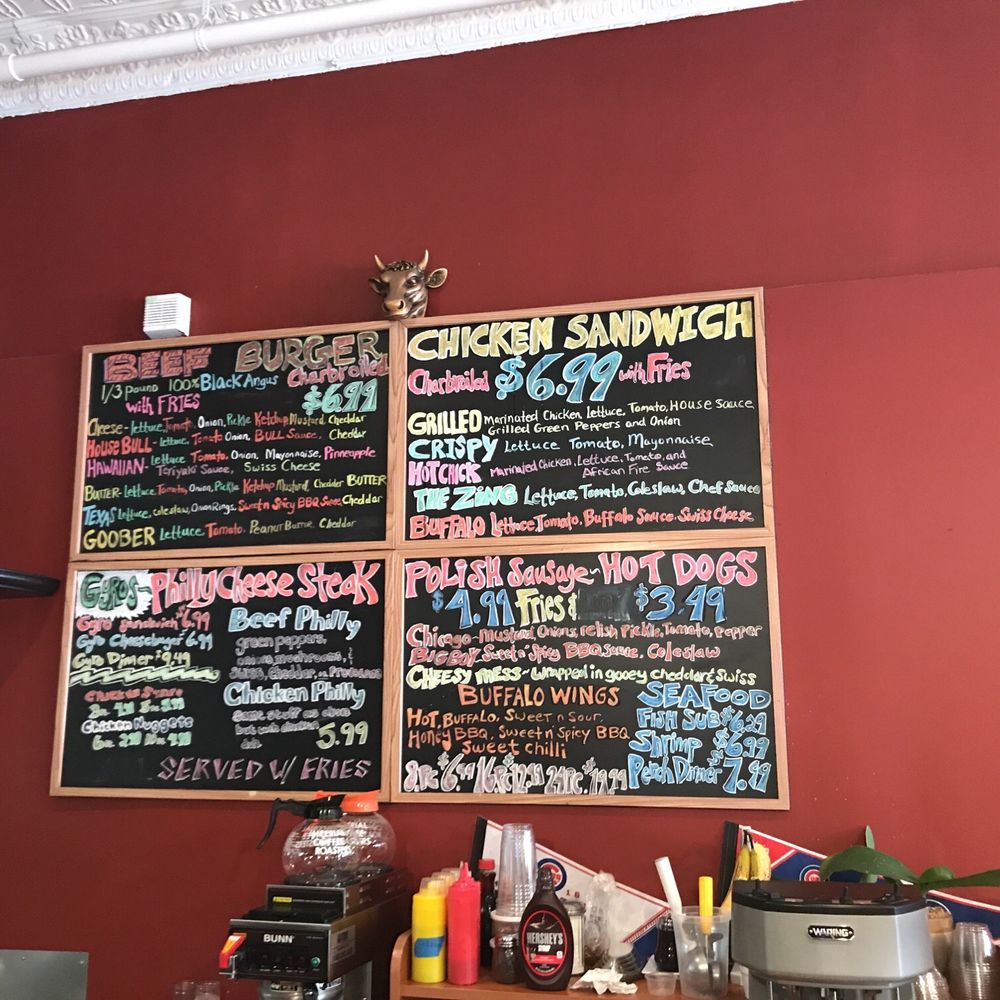 BEEF BURGER
1/3 Pound 100% Black Angus Charbroiled
with FRIES $6.99
Cheese - lettuce, Tomato, Onion, Pickle Ketchup Mustard, Cheddar
HOUSE BULL - lettuce, Tomato Onion, BULL Sauce, Cheddar
HAWAIIAN - lettuce Tomato, Onion, Mayonnaise, Pinneapple
Teriyaki Sauce, Swiss Cheese
BUTTER - Lettuce, Tomato, Onion, Pickle Ketchup Mustard, Cheddar BUTTER
TEXAS lettuce, coleslaw, Onion Rings, Sweet n Spicy BBQ Sauce, Cheddar
GOOBER Lettuce, Tomato, Peanut Cheddar
CHICKEN SANDWICH
Charbroiled $6.99 with Fries
GRILLED Marinated Chicken, Lettuce, Tomato, HOUSE Sauce
Grilled Green Peppers and Onion
CRISPY Lettuce Tomato, Mayonnaise
HOT CHICK Marinated Chicken, Lettuce, Tomato, and
African Fire Sauce
THE ZING Lettuce, Tomato, Coleslaw, Chef Sauce
BUFFALO Lettuce, Tomato, Buffalo Sauce, Swiss Cheese
Gyros ~ Philly Cheese Steak
Gyro Sandwich $6.99
Gyro Cheeseburger 6.99
Gyro Dinner 9.49
Chicken Nuggets
Beef Philly
green peppers,
onions, mushrooms, &
Swiss, Cheddar, or Provolone
Chicken Philly
5.99
SERVED W/ FRIES
POLISH Sausage ~ HOT DOGS
$4.99 Fries & $3.49
Chicago - Mustard, Onions, relish Pickle, Tomato, Pepper
BIG BOY Sweet n' Spicy BBQ Sauce, Coleslaw
CHEESY MESS ~ wrapped in gooey cheddar & Swiss
BUFFALO WINGS
HOT, BUFFALO, Sweet n Sour,
Honey BBQ, Sweet n Spicy BBQ
Sweet Chilli
8 Pc $6.99 16 Pc 12.99 24 Pc. $19.99
SEAFOOD
FISH SUB $6.29
Shrimp $6.99
Perch Dinner 7.99
BUNN
HERSHEY'S
SYRUP
WARING